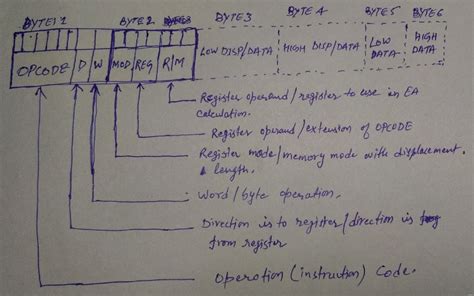 BYTE 1 BYTE 2 BYTE 3 BYTE 4 BYTE 5 BYTE 6
OPCODE D W MOD REG R/M LOW DISP/DATA HIGH DISP/DATA LOW DATA HIGH DATA
Register operand/register to use in EA
calculation.
Register operand/extension of OPCODE
Register mode/memory mode with displacement
length.
Word/byte operation.
Direction is to register/direction is
from register
Operation (instruction) Code.